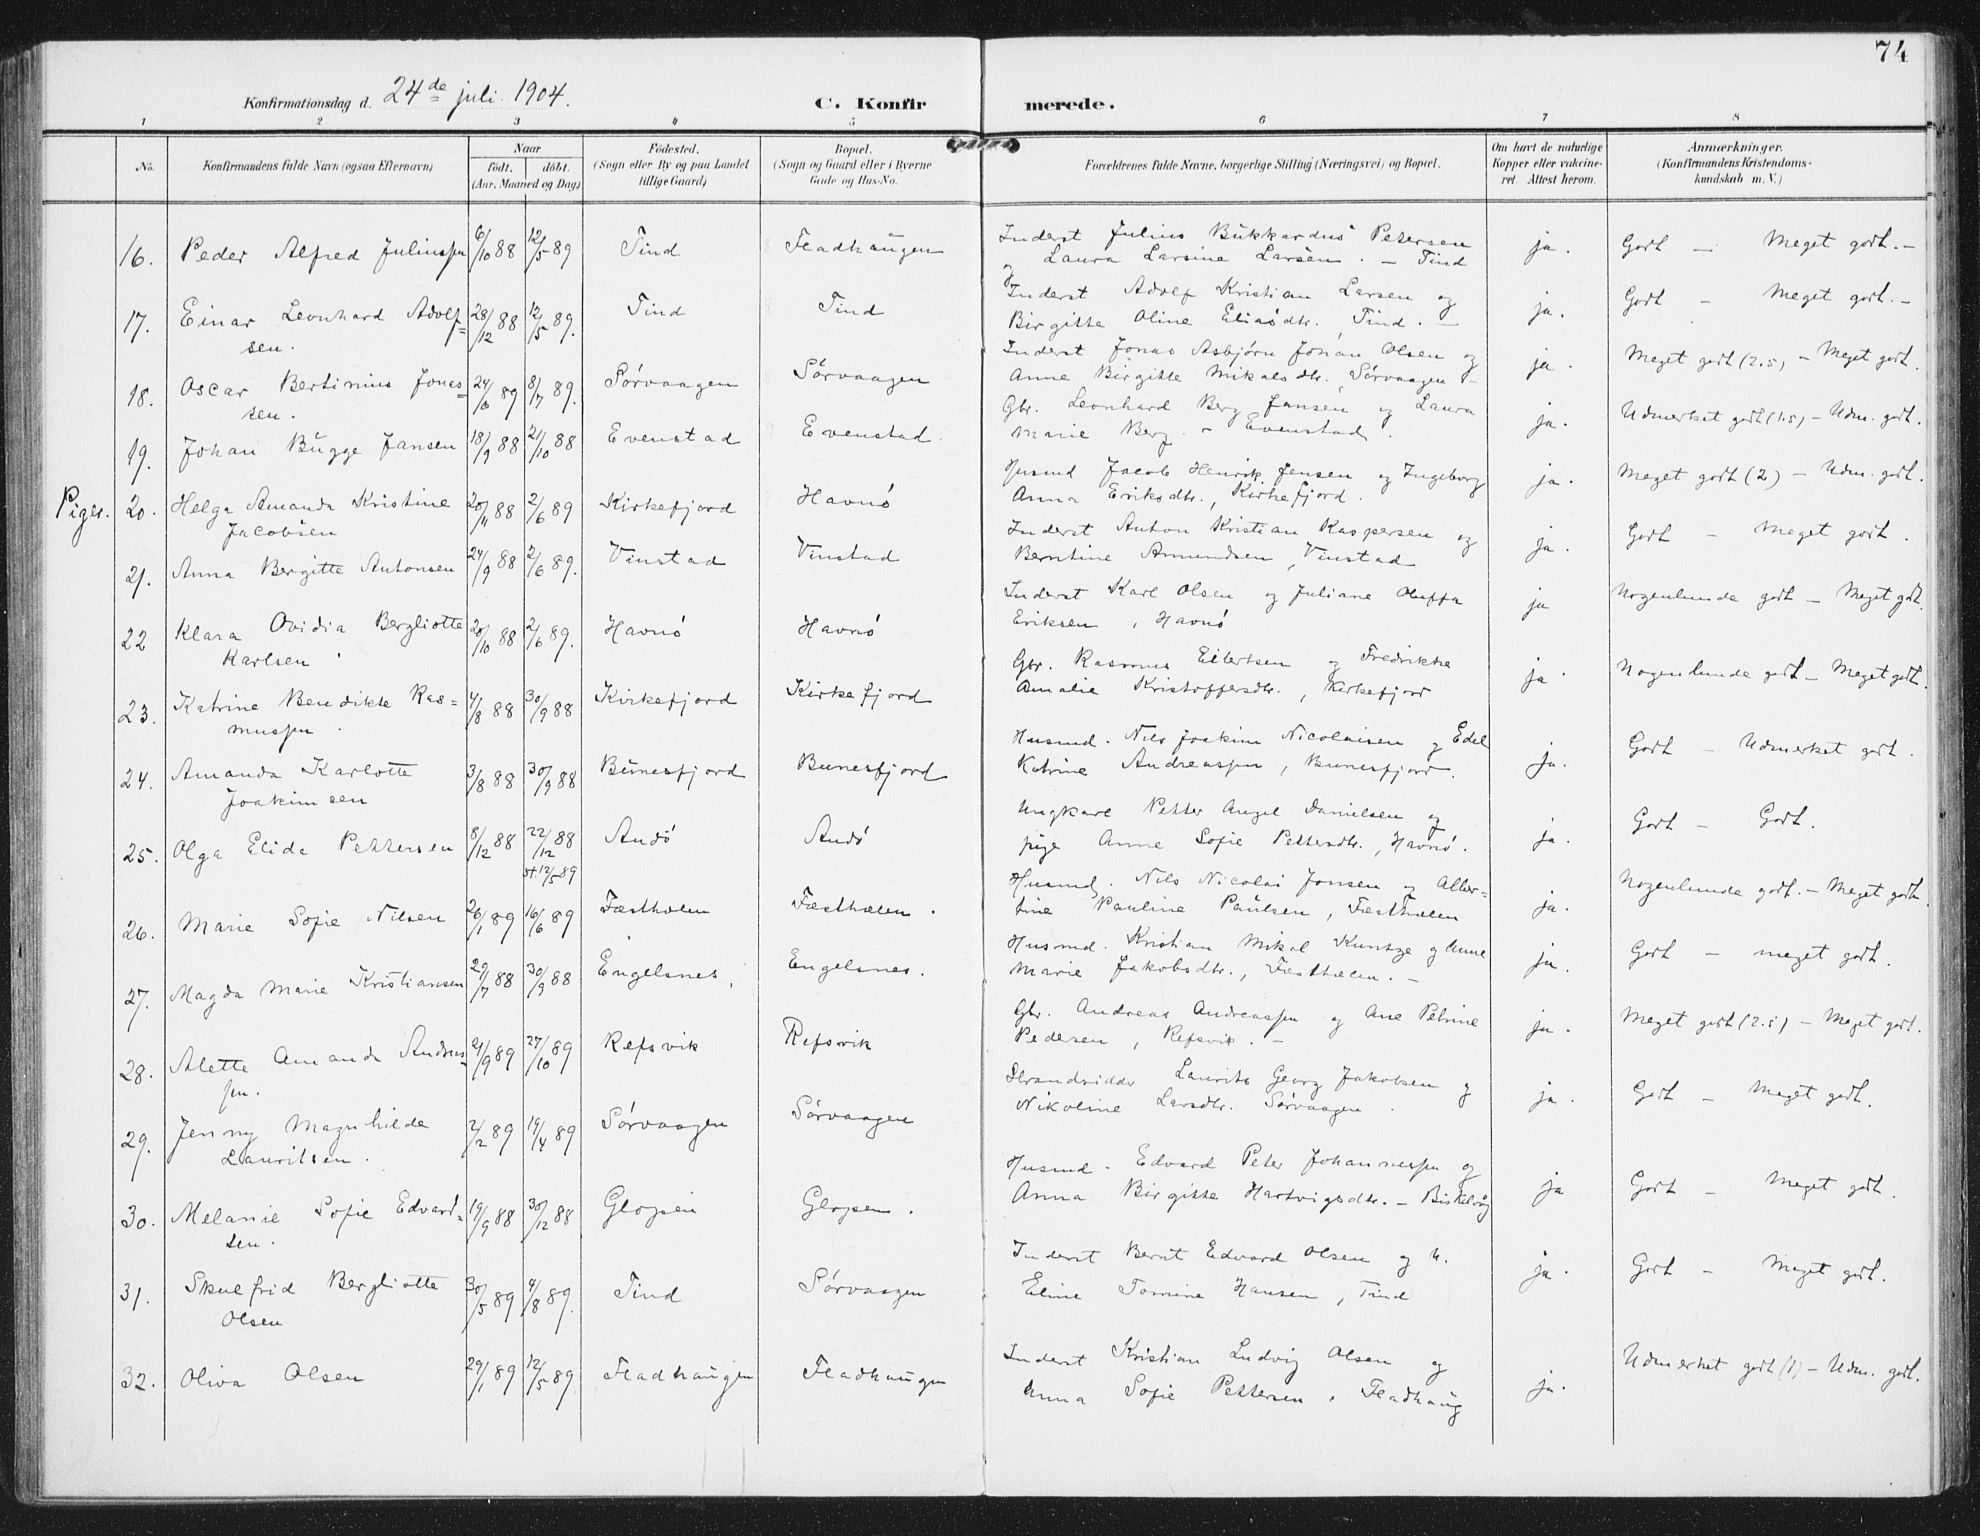 74
Konfirmationsdag d. 24de juli 1904.
C. Konfirmerede.
1 2 3 4 5 6 7 8
No.
Konfirmandens fulde Navn (ogsaa Efternavn)
Naar
født. døbt.
(Aar, Maaned og Dag)
Fødested.
(Sogn eller By og paa Landet
tillige Gaard)
Bopæl.
(Sogn og Gaard eller i Byerne
Gade og Hus-No.
Forældrenes fulde Navne, borgerlige Stilling (Næringsvei) og Bopæl.
Om havt de naturlige
Kopper eller vakcine-
ret. Attest herom.
Anmærkninger.
(Konfirmandens Kristendoms-
kundskab m. V.)
16. Peder Alfred Juliussen 6/10 88 12/5 89 Tind Fladhaugen Inderst Julius Bukkardus Petersen ja. Godt — Meget godt. —
og Laura Larsine Larsen. — Tind
17. Einar Leonhard Adolf= 28/12 88 12/5 89. Tind Tind Inderst Adolf Kristian Larsen og ja. Godt — Meget godt. —
sen. Birgitte Oline Eliasdtr. Tind. —
18. Oscar Bertinius Jonas= 24/6 89 8/7 89. Sørvaagen Sørvaagen Inderst Jonas Asbjørn Johan Olsen og ja. Meget godt (2.5) — Meget godt.
sen. Anne Birgitte Mikalsdtr. Sørvaagen —
19. Johan Bugge Jansen 18/9 88 21/10 88 Evenstad Evenstad. Gbr. Leonhard Berg Jansen og Laura ja. Udmerket godt (1.5) — Udm. godt.
Marie Berg. — Evenstad.
Piger. 20. Helga Amanda Kristine 20/11 88 2/6 89 Kirkefjord Havnø Husmd Jacob Henrik Jensen og Ingeborg ja. Meget godt (2) — Udm. godt.
Jacobsen Anna Eriksdtr., Kirkefjord.
21. Anna Bergitte Antonsen 24/9 88 2/6 89. Vinstad Vinstad Inderst Anton Kristian Kaspersen og ja. Godt — Meget godt.
Berntine Amundsen, Vinstad
22 Klara Ovidia Bergliotte 20/10 88 2/6 89. Havnø Havnø Inderst Karl Olsen og Juliane Oluffa ja Nogenlunde godt — Meget godt.
Karlsen Eriksen, Havnø
23. Katrine Bendikte Ras= 4/8 88 30/9 88 Kirkefjord Kirkefjord Gbr. Rasmus Eilertsen og Fredrikke ja. Nogenlunde godt — Meget godt.
mussen. Amalie Kristoffersdtr., Kirkefjord
24. Amanda Karlotte 3/8 88 30/9 88 Bunesfjord Bunesfjord Husmd. Nils Joakim Nicolaisen og Edel ja. Godt — Udmerket godt.
Joakimsen Katrine Andreassen, Bunesfjord.
25. Olga Elida Pettersen 8/12 88 22/12 88 Andø Andø Ungkarl Petter Angel Danielsen og ja. Godt — Godt.
st. 12/5 89 pige Anne Sofie Pettersdtr., Havnø.
26. Marie Sofie Nilsen 26/1 89 16/6 89 Fæsthælen Fæsthælen. Husmd. Nils Nicolai Jonsen og Alber= ja. Nogenlunde godt. — Meget godt
tine Pauline Paulsen, Fæsthælen
27. Magda Marie Kristiansen 29/7 88 30/9 88 Engelsnes, Engelsnes. Husmd. Kristian Mikal Kuntze og Anne ja. Godt — meget godt.
Marie Jakobsdtr., Fæsthælen. —
28. Alette Amanda Andreas= 21/9 89 27/10 89 Refsvik Refsvik Gbr. Andreas Andreassen og Ane Petrine ja. Meget godt (2.5) — Meget godt.
sen. Pedersen, Refsvik. —
29. Jenny Magnhilde 2/2 89 19/4 89 Sørvaagen Sørvaagen Strandsidder Laurits Georg Jakobsen og ja. Godt — Meget godt.
Lauritsen. Nikoline Larsdtr. Sørvaagen.
30. Melanie Sofie Edvard= 19/9 88 30/12 88 Glopen Glopen. Husmd. Edvard Peter Johannessen og ja Godt — Meget godt.
sen. Anna Birgitte Hartvigsdtr. —
31. Skulfrid Bergliotte 30/5 89 4/8 89. Tind Sørvaagen Inderst Bernt Edvard Olsen og h. ja. Godt — Meget godt.
Olsen Eline Tomine Hansen, Tind
32. Oliva Olsen 29/1 89 12/5 89 Fladhaugen Fladhaugen Inderst Kristian Ludvig Olsen og ja. Udmerket godt (1) — Udm. godt.
Anna Sofie Pettersen. Fladhaug